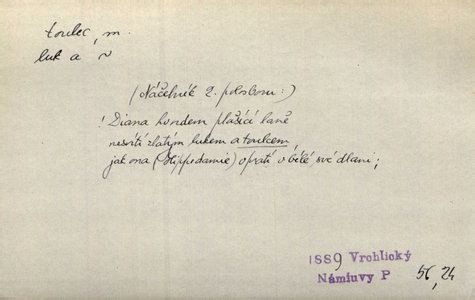 toulec, m.
luk a ~
(Náčelník 2. polosboru:)
! Diana hvozdem plašící laně
nesvítí zlatým lukem a toulcem,
jak ona (Hippodamie) opratí v bělé své dlani;
1889 Vrchlický
Námluvy P 56, 24